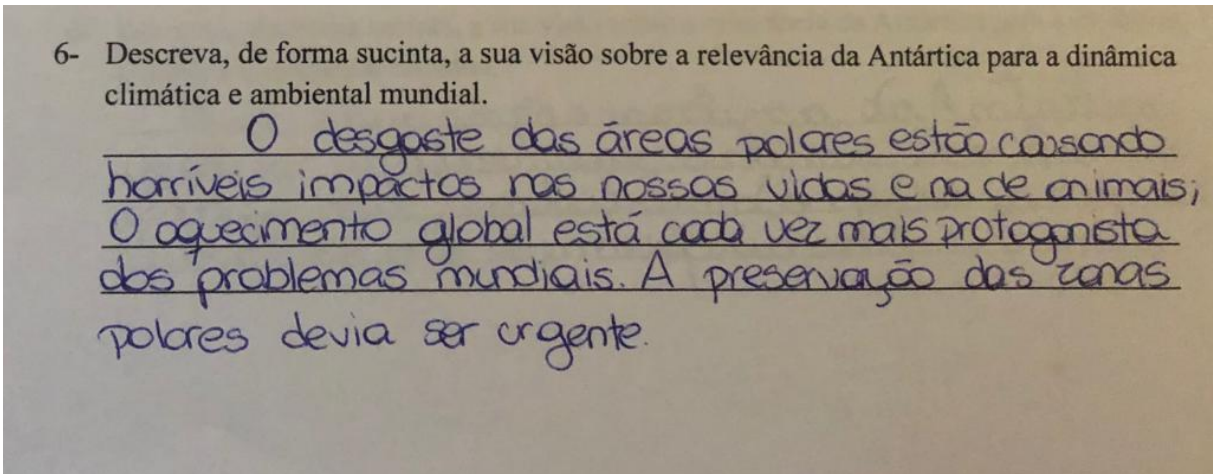 6- Descreva, de forma sucinta, a sua visão sobre a relevância da Antártica para a dinâmica
climática e ambiental mundial.
O desgaste das áreas polares estão causando
horríveis impactos nas nossas vidas e na de animais;
O aquecimento global está cada vez mais protagonista
dos problemas mundiais. A preservação das zonas
polares devia ser urgente.